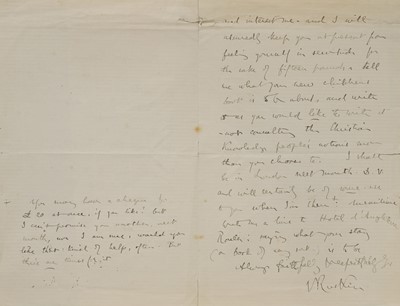 not interest me - and I will
assuredly keep you at present from
feeling yourself in servitude for
the sake of fifteen pounds. Tell
me what your new children's
book is to be about, and write
it as you would like to write it
- not consulting the Christian
Knowledge people's notions more
than you choose to. I shall
be in London next month D.V
and will certainly be of some use
to you when I'm there: meantime
send me a line to Hotel d'
saying what your story
(or book of any sort) is to be
Always faithfully & respectfully
J Ruskin
You may have a cheque for
it at once, if you like: but
I can't promise you another, next
month, nor I am sure, would you
take that kind of help, often - but
there's any time for it